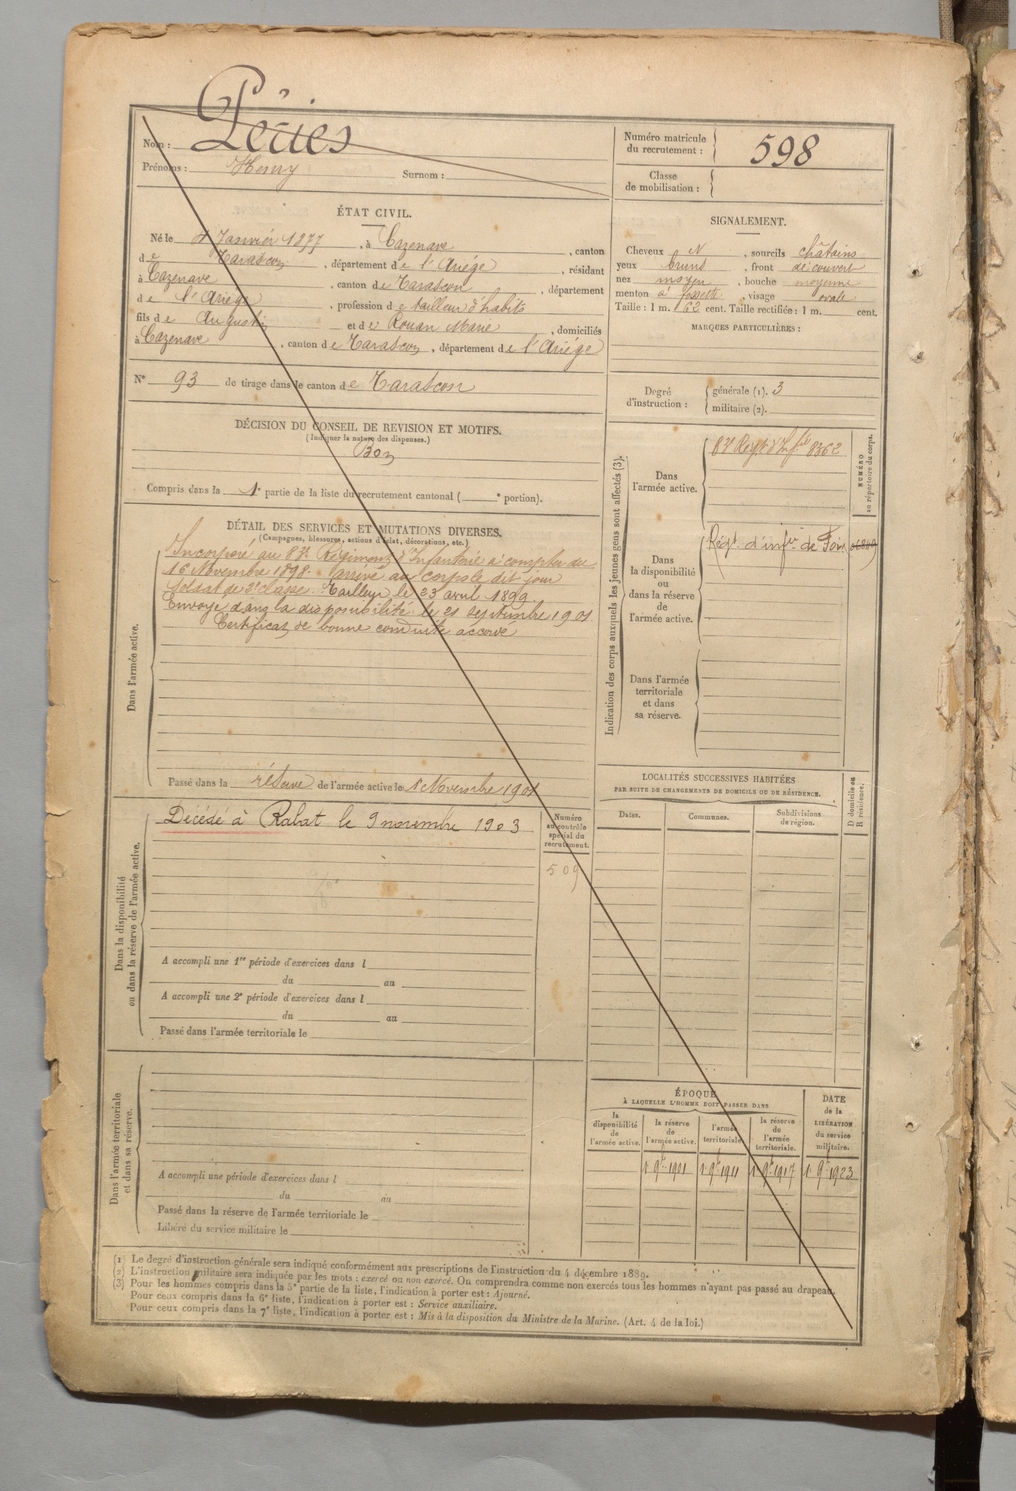 Nom : Péries
Prénoms : Henry Surnom :
Numéro matricule du recrutement : 598
Classe de mobilisation :
ÉTAT CIVIL.
Né le 4 Janvier 1877, à Cazenave, canton
de Tarascon, département de l'Ariége, résidant
à Cazenave, canton de Tarascon, département
de l'Ariége, profession de tailleur d'habits
fils de Augustin et de Rouan Marie, domiciliés
à Cazenave, canton de Tarascon, département de l'Ariége
N° 93 de tirage dans le canton de Tarascon
SIGNALEMENT.
Cheveux N, sourcils châtains
yeux bruns, front découvert
nez moyen, bouche moyenne
menton à fossette, visage ovale
Taille : 1 m. 62 cent. Taille rectifiée : 1 m. cent.
MARQUES PARTICULIÈRES :
Degré d'instruction : générale (1). 3
militaire (2).
DÉCISION DU CONSEIL DE REVISION ET MOTIFS.
(Indiquer la nature des dispenses.)
Bon
Compris dans la 1e partie de la liste du recrutement cantonal ( e portion).
DÉTAIL DES SERVICES ET MUTATIONS DIVERSES.
(Campagnes, blessures, actions d'éclat, décorations, etc.)
Dans l'armée active.
Incorporé au Régiment d'Infanterie à compter du
16 Novembre 1898. arrivé au corps le dit jour
Soldat de 2e classe. Tailleur le 23 avril 1899.
Envoyé dans la disponibilité le 21 septembre 1901
Certificat de bonne conduite accordé
Passé dans la réserve de l'armée active le 1 Novembre 1901
Indication des corps auxquels les jeunes gens sont affectés (3).
NUMÉRO au répertoire du corps.
Dans l'armée active.
Regt d'Infie 8362
Dans la disponibilité ou dans la réserve de l'armée active.
Régt d'infie de Foix
Dans l'armée territoriale et dans sa réserve.
LOCALITÉS SUCCESSIVES HABITÉES
PAR SUITE DE CHANGEMENTS DE DOMICILE OU DE RÉSIDENCE.
D domicile ou R résidence.
Dates. Communes. Subdivisions de région.
Dans la disponibilité ou dans la réserve de l'armée active.
Décédé à Rabat le 9 novembre 1903
Numéro au contrôle spécial du recrutement.
509
A accompli une 1re période d'exercices dans l
du au
A accompli une 2e période d'exercices dans l
du au
Passé dans l'armée territoriale le
Dans l'armée territoriale et dans sa réserve.
A accompli une période d'exercices dans l
du au
Passé dans la réserve de l'armée territoriale le
Libéré du service militaire le
ÉPOQUE
À LAQUELLE L'HOMME DOIT PASSER DANS
DATE de la LIBÉRATION du service militaire.
la disponibilité de l'armée active. la réserve de l'armée active. l'armée territoriale. la réserve de l'armée territoriale.
1 9e 1901 1 9e 1911 1 9e 1917 1 9e 1923
(1) Le degré d'instruction générale sera indiqué conformément aux prescriptions de l'instruction du 4 décembre 1889.
(2) L'instruction militaire sera indiquée par les mots : exercé ou non exercé. On comprendra comme non exercés tous les hommes n'ayant pas passé au drapeau.
(3) Pour les hommes compris dans la 5e partie de la liste, l'indication à porter est : Ajourné.
Pour ceux compris dans la 6e liste, l'indication à porter est : Service auxiliaire.
Pour ceux compris dans la 7e liste, l'indication à porter est : Mis à la disposition du Ministre de la Marine. (Art. 4 de la loi.)